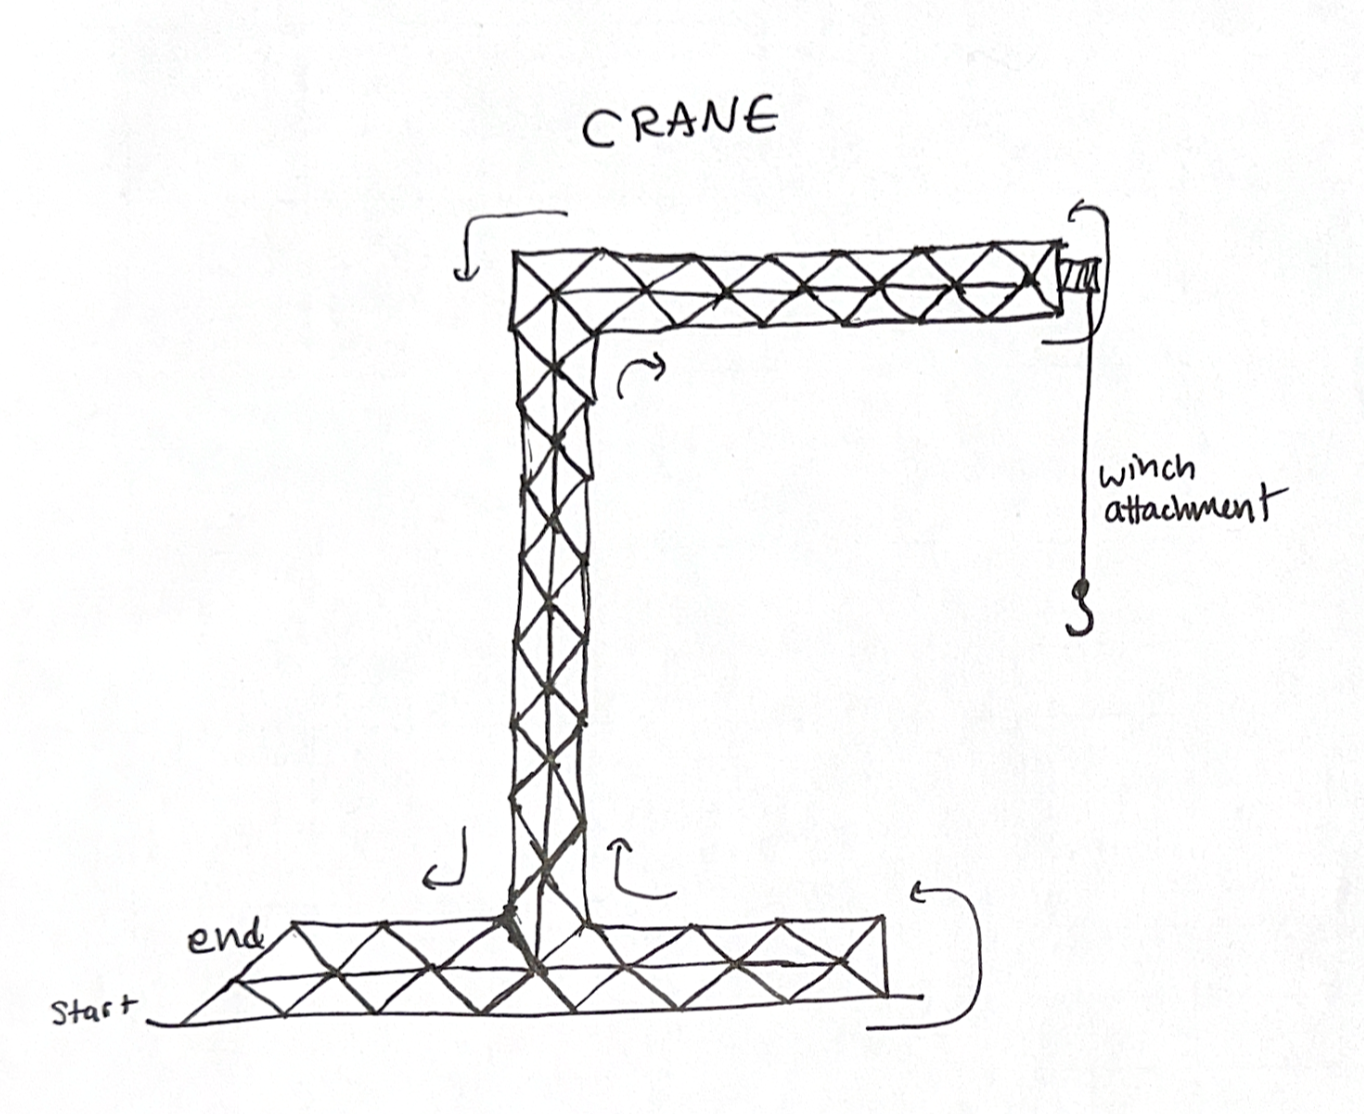 CRANE
winch
attachment
end
Start